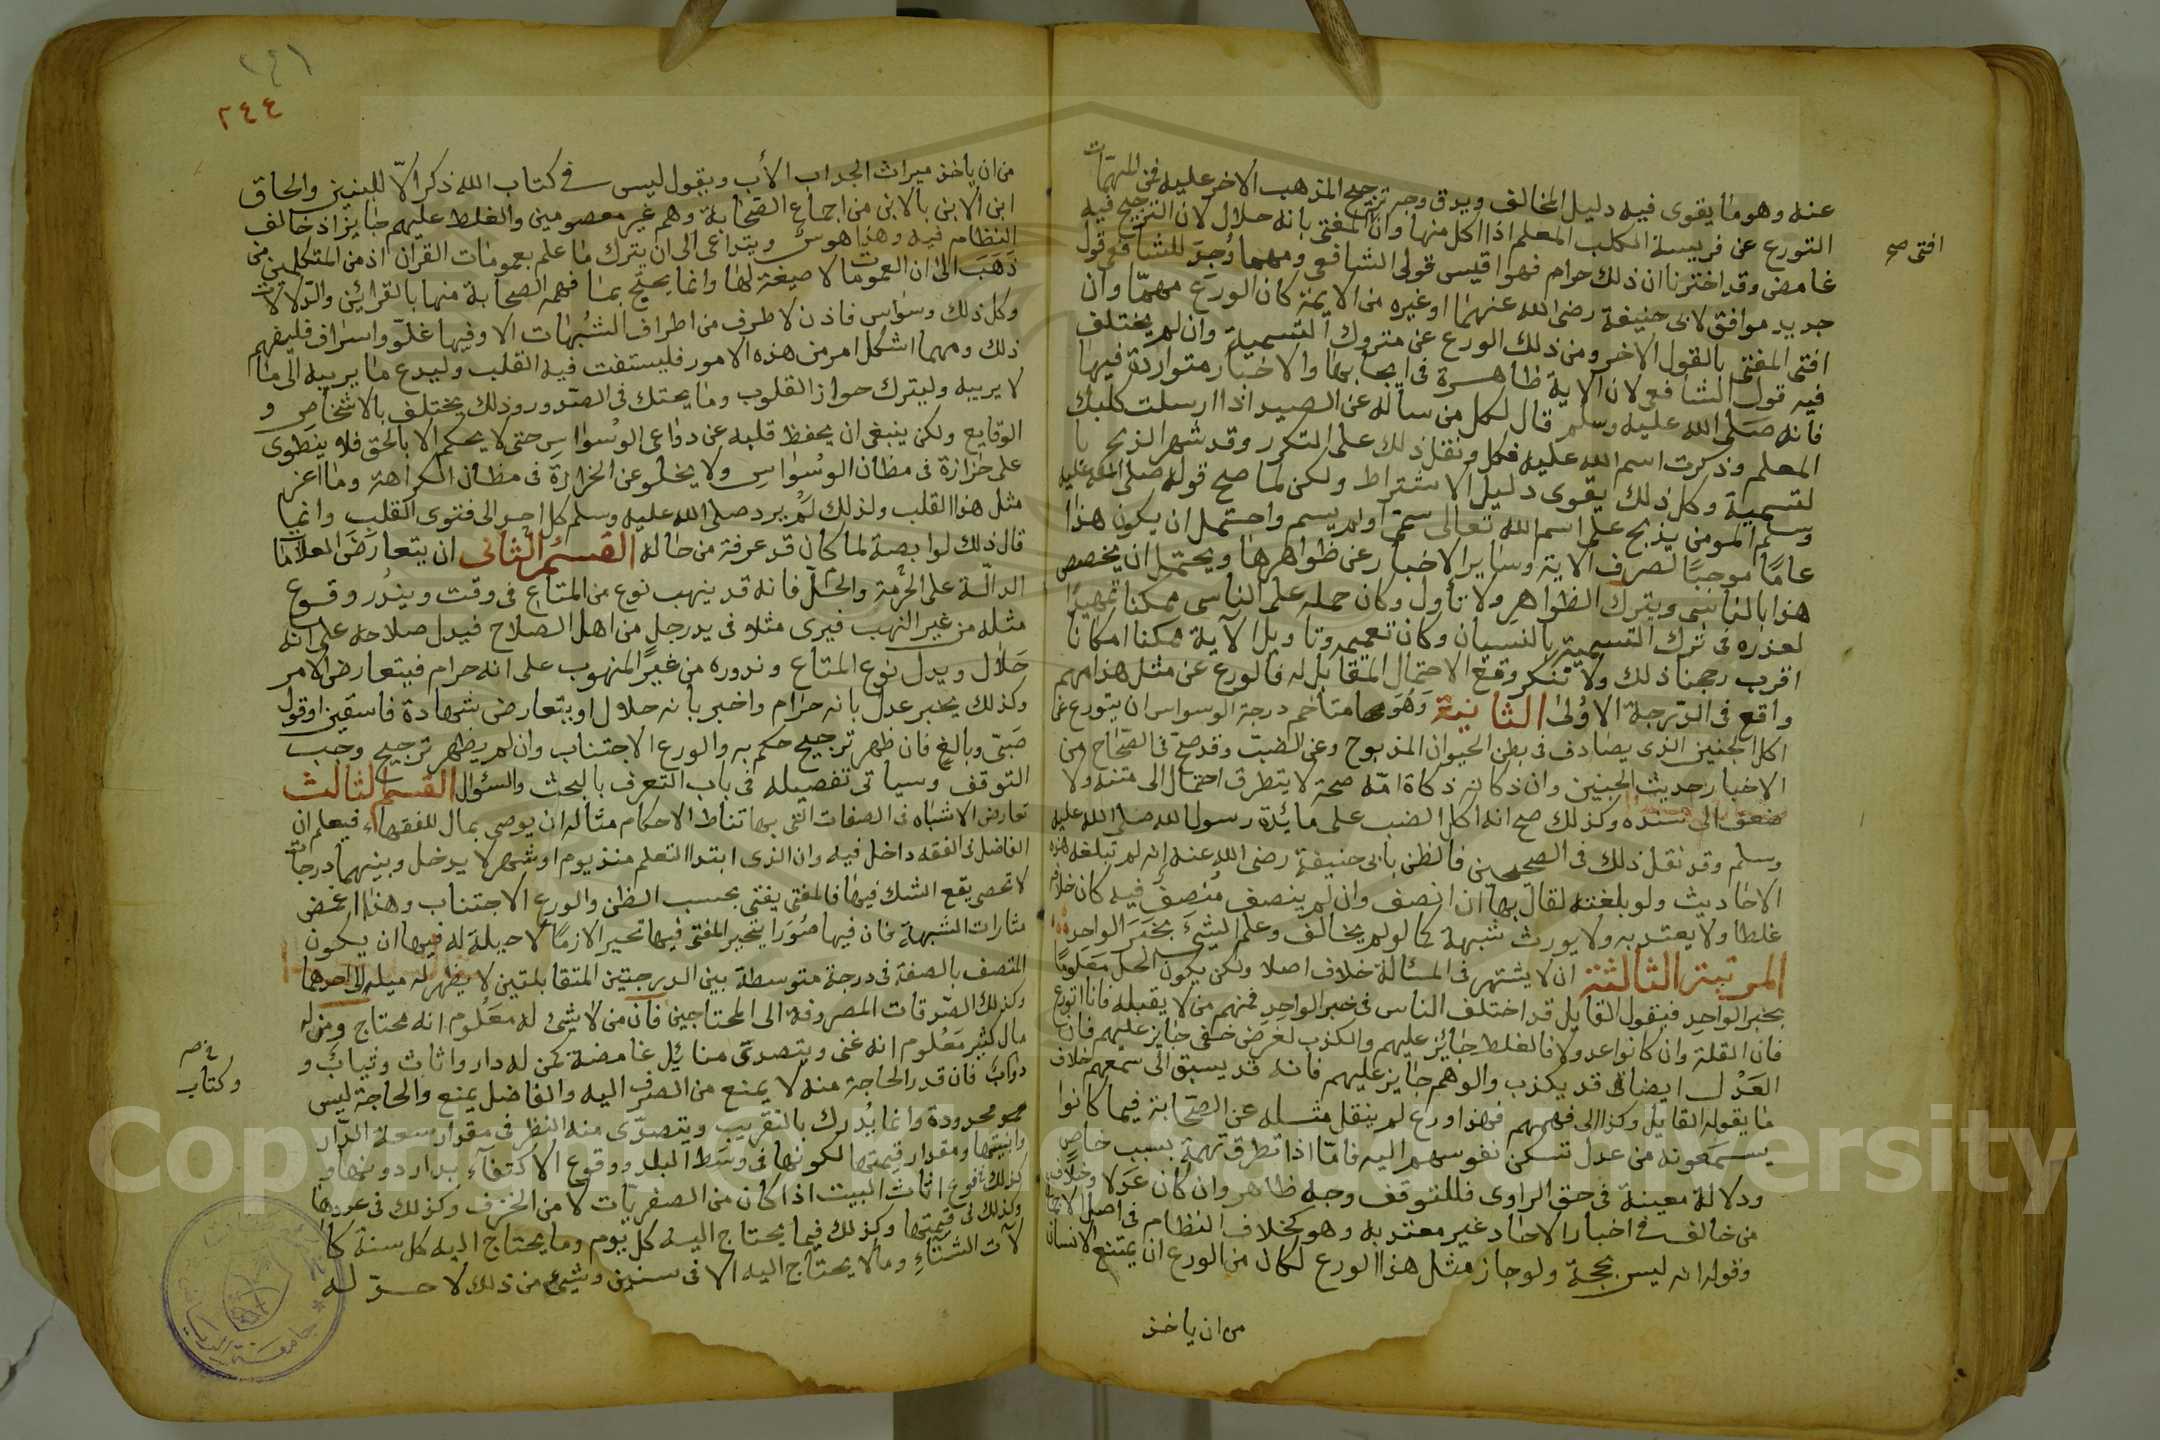 عنه وهو ما يقوى فيه دليل المخالف ويدق وجه ترجيح المذهب الاخر عليه فمن المهمات
التورع عن فريسة الكلب المعلم اذا اكل منها وان المفتى بانه حلال لان الترجيح فيه
غامض وقد اخترنا ان ذلك حرام فهو اقيس قولى الشافعى ومهما وُجد للشافعى قول
جديد موافق لابى حنيفة رضى الله عنهما او غيره من الايمة كان الورع مهمّا وان
افتى المفتى بالقول الاخر ومن ذلك الورع عن متروك التسمية وان لم يختلف
فيه قول الشافعى لان الاية ظاهرة فى ايجابها والاخبار متواردة فيها
فانه صلى الله عليه وسلم قال لكل من ساله عن الصيد اذا ارسلت كلبك
المعلم وذكرت اسم الله عليه فكل ونقل ذلك على التكرر وقد شهر الذبح با
لتسمية وكل ذلك يقوى دليل الاشتراط ولكن لما صح قوله صلى الله عليه
وسلم المومن يذبح على اسم الله تعالى سمى او لم يسم واحتمل ان يكون هذا
عامًا موجبًا لصرف الاية وساير الاخبار عن ظواهرها ويحتمل ان يخصص
هذا بالناسى ويترك الظواهر ولا تأول وكان حمله على الناسى ممكنا تمهيدًا
لعذره فى ترك التسمية بالنسيان وكان تعميمه وتاويل الآية ممكنا امكانا
اقرب رجحنا ذلك ولا ننكر وقع الاحتمال المتقابل له فالورع عن مثل هذا مهم
واقع فى الدّرجة الاُولى الثانية وَهُوَ متاخم درجة الوسواس ان يتورع عن
اكل الجنين الذى يصادف فى بطن الحيوان المذبوح وعن الضبّ وقد صحّ فى الصّحاح من
الاخبار حديث الجنين وان ذكاته ذكاة امّه صحة لا يتطرق احتمال الى متنه ولا
ضعف الى سنده وكذلك صح انه اكل الضب على مائدة رسول الله صلى الله عليه
وسلم وقد نقل ذلك فى الصحيحين فالظن بابى حنيفة رضى الله عنه انه لم تبلغه هذه
الاحاديث ولو بلغته لقال بها ان انصف وان لم ينصف مُنصِف فيه كان خلافه
غلطا ولا يعتد به ولا يورث شبهة كما لو لم يخالف وعلم الشئ بخبر الواحد
المرتبة الثالثة ان لا يشتهر فى المسألة خلاف اصلا ولكن يكون الحل مَعَلومًا
بخبر الواحد فيقول القايل قد اختلف الناس فى خبر الواحد فمنهم من لا يقبله فانا اتورع
فان النقلة وان كانوا عدولا فالغلط جائز عليهم والكذب لغرض خفى جايز عليهم فان
العَدْل ايضا قد يكذب والوهم جايز عليهم فانه قد يسبق الى سمعهم خلاف
ما يقوله القايل وكذا الى فهمهم فهذا ورع لم ينقل مثله عن الصحابة فيما كانوا
يسمعونه من عدل تسكن نفوسهم اليه فامّا اذا تطرق تهمة بسبب خاص
ودلالة معينة فى حق الراوى فللتوقف وجه ظاهر وان كان عَدَلا وخلاف
من خالف فى اخبار الاحاد غير معتد به وهو كخلاف النظام فى اصل الاجماع
وقوله انه ليس بحجة ولو جاز مثل هذا الورع لكان من الورع ان يمتنع الانسان
من ان ياخذ
افتى صح
٢٤١
٢٤٤
من ان يأخذ ميراث الجد اب الأب ويقول ليس فى كتاب الله ذكر الّا للبنين والحاق
ابن الابن بالابن من اجماع الصحابة وهم غير معصومين والغلط عليهم جايز اذ خالف
النظام فيه وهذا هوس ويتداعى الى ان يترك ما علم بعمومات القران اذ من المتكلمين من
ذَهَبَ الى ان العمومات لا صيغة لها وانما يحتج بما فهمه الصحابة منها بالقرائن والدّلالات
وكل ذلك وسواس فاذن لا طرف من اطراف الشبهات الا وفيها غلوّ واسراف فليفهم
ذلك ومهما اشكل امر من هذه الامور فليستفت فيه القلب وليدع ما يريبه الى ما
لا يريبه وليترك حواز القلوب وما يحتك فى الصّدور وذلك يختلف بالاشخاص و
الوقايع ولكن ينبغى ان يحفظ قلبه عن دواعى الوسواس حتى لا يحكم الا بالحق فلا ينطوى
على حزازة فى مظان الوسواس ولا يخلو عن الحزازة فى مظان الكراهة وما اعز
مثل هذا القلب ولذلك لَمْ يرد صلى الله عليه وسلم كل احد الى فتوى القلب وانما
قال ذلك لوابصة لما كان قد عرفه من حاله القسم الثانى ان يتعارض العلامات
الدالّة على الحُرْمة والحِلّ فانه قد ينهب نوع من المتاع فى وقت ويندُر وقوع
مثله من غير النهب فيرى مثلا فى يد رجل من اهل الصلاح فيدل صلاحه على انّه
حَلال ويدل نوع المتاع وندوره من غير المنهوب على انه حرام فيتعارض الامر
وكذلك يخبر عدل بانه حرام واخبر بانه حلال او يتعارض شهادة فاسقين او قول
صَبىّ وبالغ فان ظهر ترجيح حكم به والورع الاجتناب وان لم يظهر ترجيح وجب
التوقف وسياتى تفصيله فى باب التعرف بالبحث والسؤال القسم الثالث
تعارض الاشباه فى الصفات التى بها تناط الاحكام مثاله ان يوصى بمال للفقهاء فيعلم ان
الفاضل فى الفقه داخل فيه وان الذى ابتدا التعلم منذ يوم او شهر لا يدخل وبينهما درجات
لا تحصى يقع الشك فيها فالمفتى يفتى بحسب الظن والورع الاجتناب وهذا اغمض
مثارات الشبهة فان فيها صُوَرا يتحير المفتى فيها تحيرا لازمًا لا حيلة له فيها ان يكون
المتصف بالصفة فى درجة متوسطة بين الدرجتين المتقابلتين لا يظهر له ميله الى احدهما
وكذلك الصّدقات المصروفة الى المحتاجين فان من لا شئ له مَعَلُوم انه محتاج ومن له
مال كثير مَعَلُوم انه غنى ويتصدى مسائل غامضة كمن له دار واثاث وثياب و
دوابّ فان قدر الحاجة منه لا يمنع من الصرف اليه والفاضل يمنع والحاجة ليس
محدودة وانما يُدرك بالتقريب ويتصدّى منه النظر فى مقدار سعة الدّار
وابنيتها ومقدار قيمتها لكونها فى وسَط البلد ووقوع الاكتفاء بدار دونها و
كذلك فى نوع اثاث البيت اذا كان من الصفريّات لا من الخزف وكذلك فى عددها
وكذلك فى قيمتها وكذلك فيما يحتاج اليه كل يوم وما يحتاج اليه كل سنة كا
لآت الشتاء وما لا يحتاج اليه الا فى سنين وشئ من ذلك لا حدّ له
وكتاب
Copyright © King Saud University